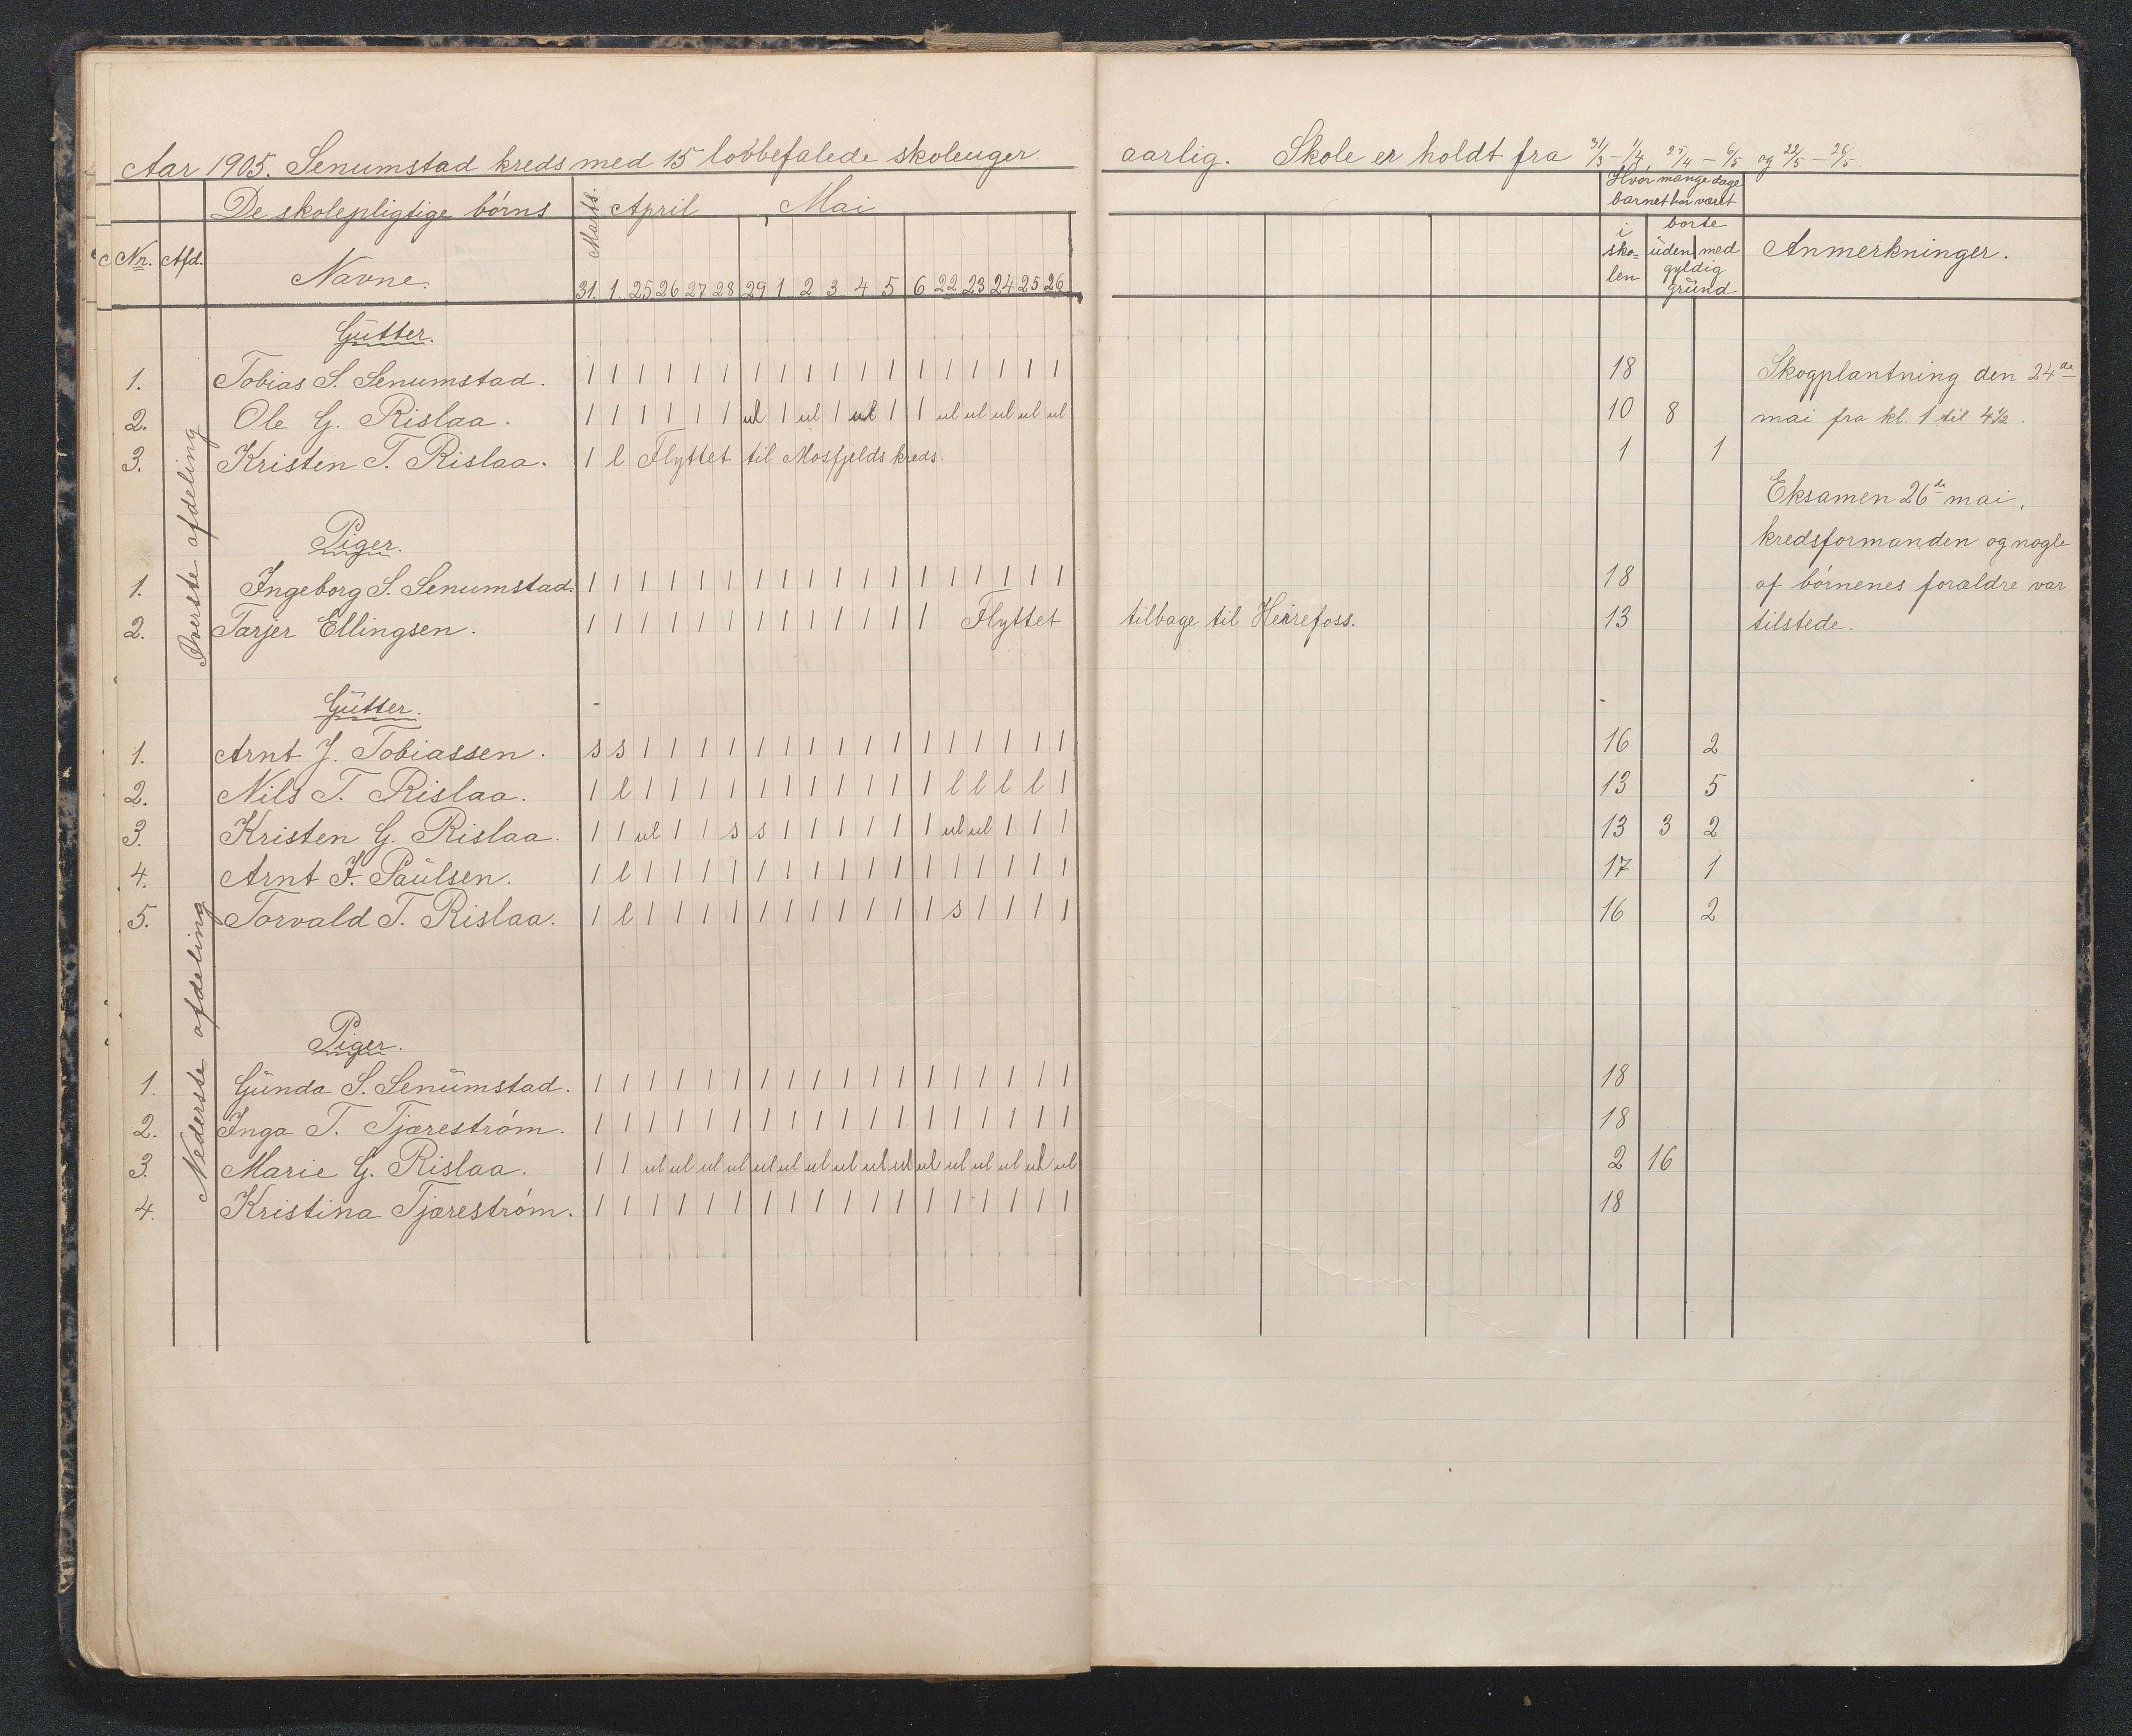 Aar 1905. Senumstad kreds med 15 lovbefalede skoleuger aarlig. Skole er holdt fra 31/3 – 1/4, 25/4 – 6/5 og 22/5 – 26/5.
De skolepligtige börns Marts. April Mai Hvor mange dage barnet har været
Nr. Afd. Navne. 31. 1. 25 26 27 28 29 1 2 3 4 5 6 22 23 24 25 26 i skolen borte uden med gyldig grund Anmerkninger.
Överste afdeling
Gutter.
1. Tobias S. Senumstad. 1 1 1 1 1 1 1 1 1 1 1 1 1 1 1 1 1 1 18 Skogplantning den 24de
2. Ole G. Rislaa. 1 1 1 1 1 1 ul 1 ul 1 ul 1 1 ul ul ul ul ul 10 8 mai fra kl. 1 til 4½.
3. Kristen T. Rislaa. 1 l Flyttet til Mosfjelds kreds. 1 1
Eksamen 26de mai,
Piger. kredsformanden og nogle
1. Ingeborg S. Senumstad. 1 1 1 1 1 1 1 1 1 1 1 1 1 1 1 1 1 1 18 af börnenes forældre var
2. Tarjer Ellingsen. 1 1 1 1 1 1 1 1 1 1 1 1 1 Flyttet tilbage til Heirefoss. 13 tilstede.
Nederste afdeling
Gutter.
1. Arnt J. Tobiassen. s s 1 1 1 1 1 1 1 1 1 1 1 1 1 1 1 1 16 2
2. Nils T. Rislaa. 1 l 1 1 1 1 1 1 1 1 1 1 1 l l l l 1 13 5
3. Kristen G. Rislaa. 1 1 ul 1 1 s s 1 1 1 1 1 1 ul ul 1 1 1 13 3 2
4. Arnt F. Paulsen. 1 l 1 1 1 1 1 1 1 1 1 1 1 1 1 1 1 1 17 1
5. Torvald T. Rislaa. 1 l 1 1 1 1 1 1 1 1 1 1 1 s 1 1 1 1 16 2
Piger.
1. Gunda S. Senumstad. 1 1 1 1 1 1 1 1 1 1 1 1 1 1 1 1 1 1 18
2. Inga T. Tjæreström. 1 1 1 1 1 1 1 1 1 1 1 1 1 1 1 1 1 1 18
3. Marie G. Rislaa. 1 1 ul ul ul ul ul ul ul ul ul ul ul ul ul ul ul ul 2 16
4. Kristina Tjæreström. 1 1 1 1 1 1 1 1 1 1 1 1 1 1 1 1 1 1 18